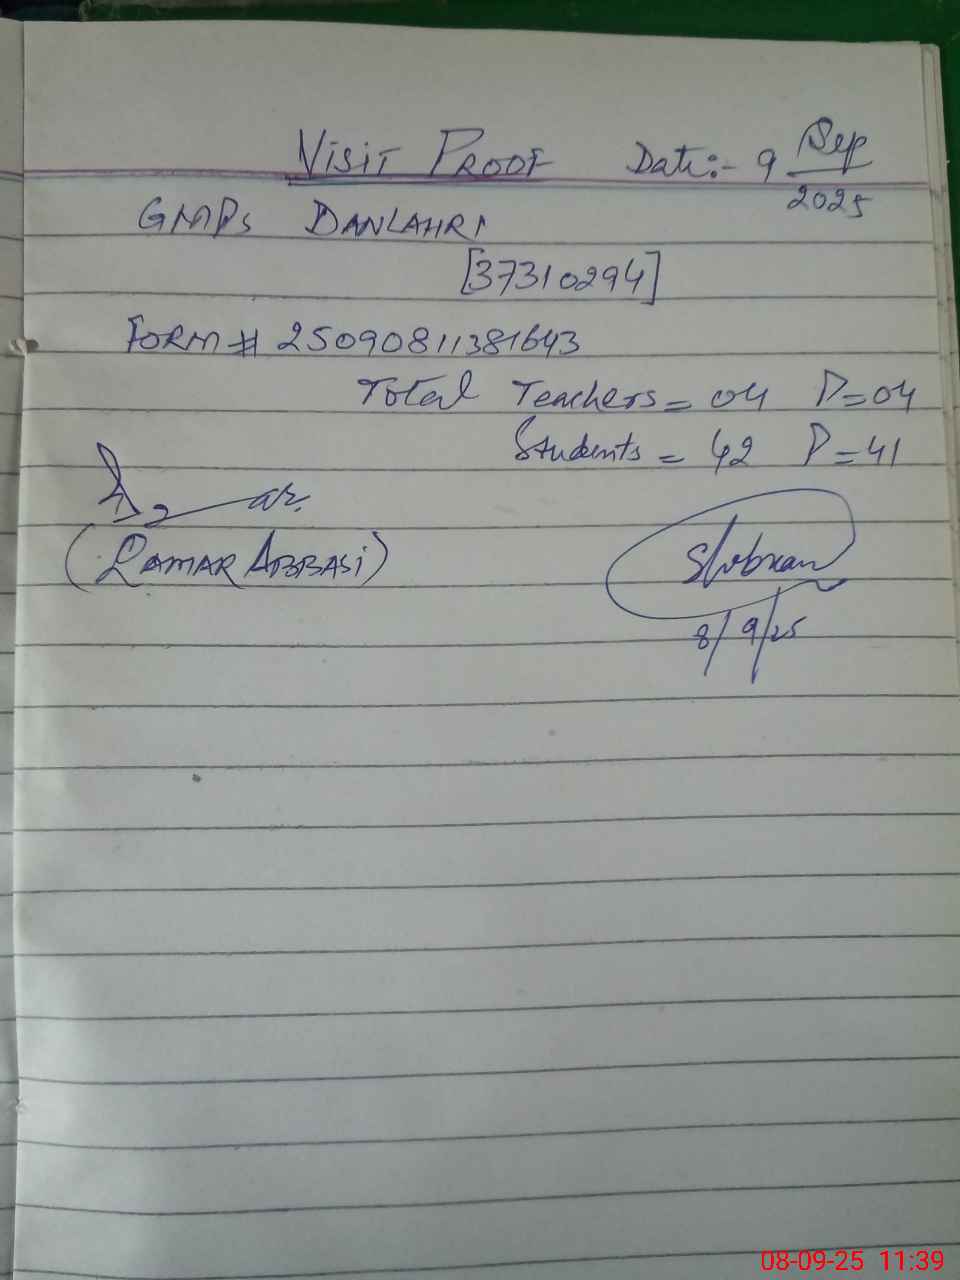 VISIT PROOF Date:- 9 Sep
2025
GMPS DANLAHRI
[37310294]
FORM # 25090811381643
Total Teachers = 04 P=04
Students = 42 P=41
(QAMAR ABBASI)
8/9/25
08-09-25 11:39